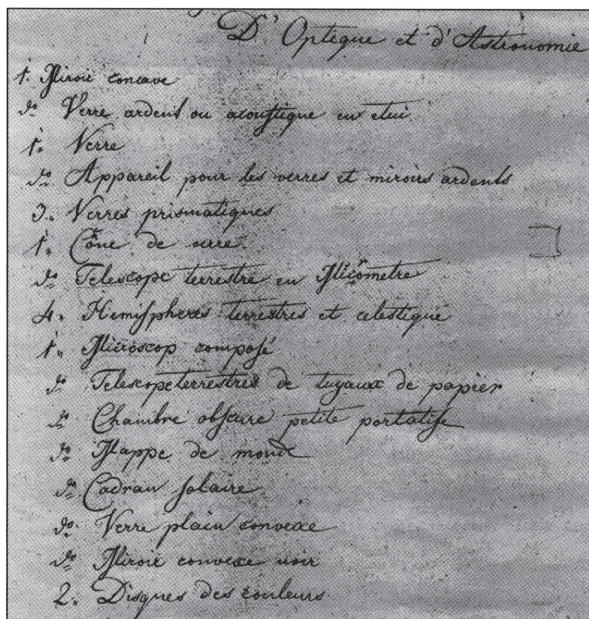 D'Optique et d'Astronomie
1. Miroir concave
do Verre ardent ou acoustique en etui
1. Verre
do Appareil pour les verres et miroirs ardents
3. Verres prismatiques
1. Cône de verre
do Telescope terrestre en Micometre
4. Hemispheres terrestres et celestique
1. Microscop composé
do Telescope terrestres de tuyaux de papier
do Chambre obscure petite portatife
do Mappe de monde
do Cadran solaire
do Verre plain convexe
do Miroir convexe noir
2. Disques des couleurs